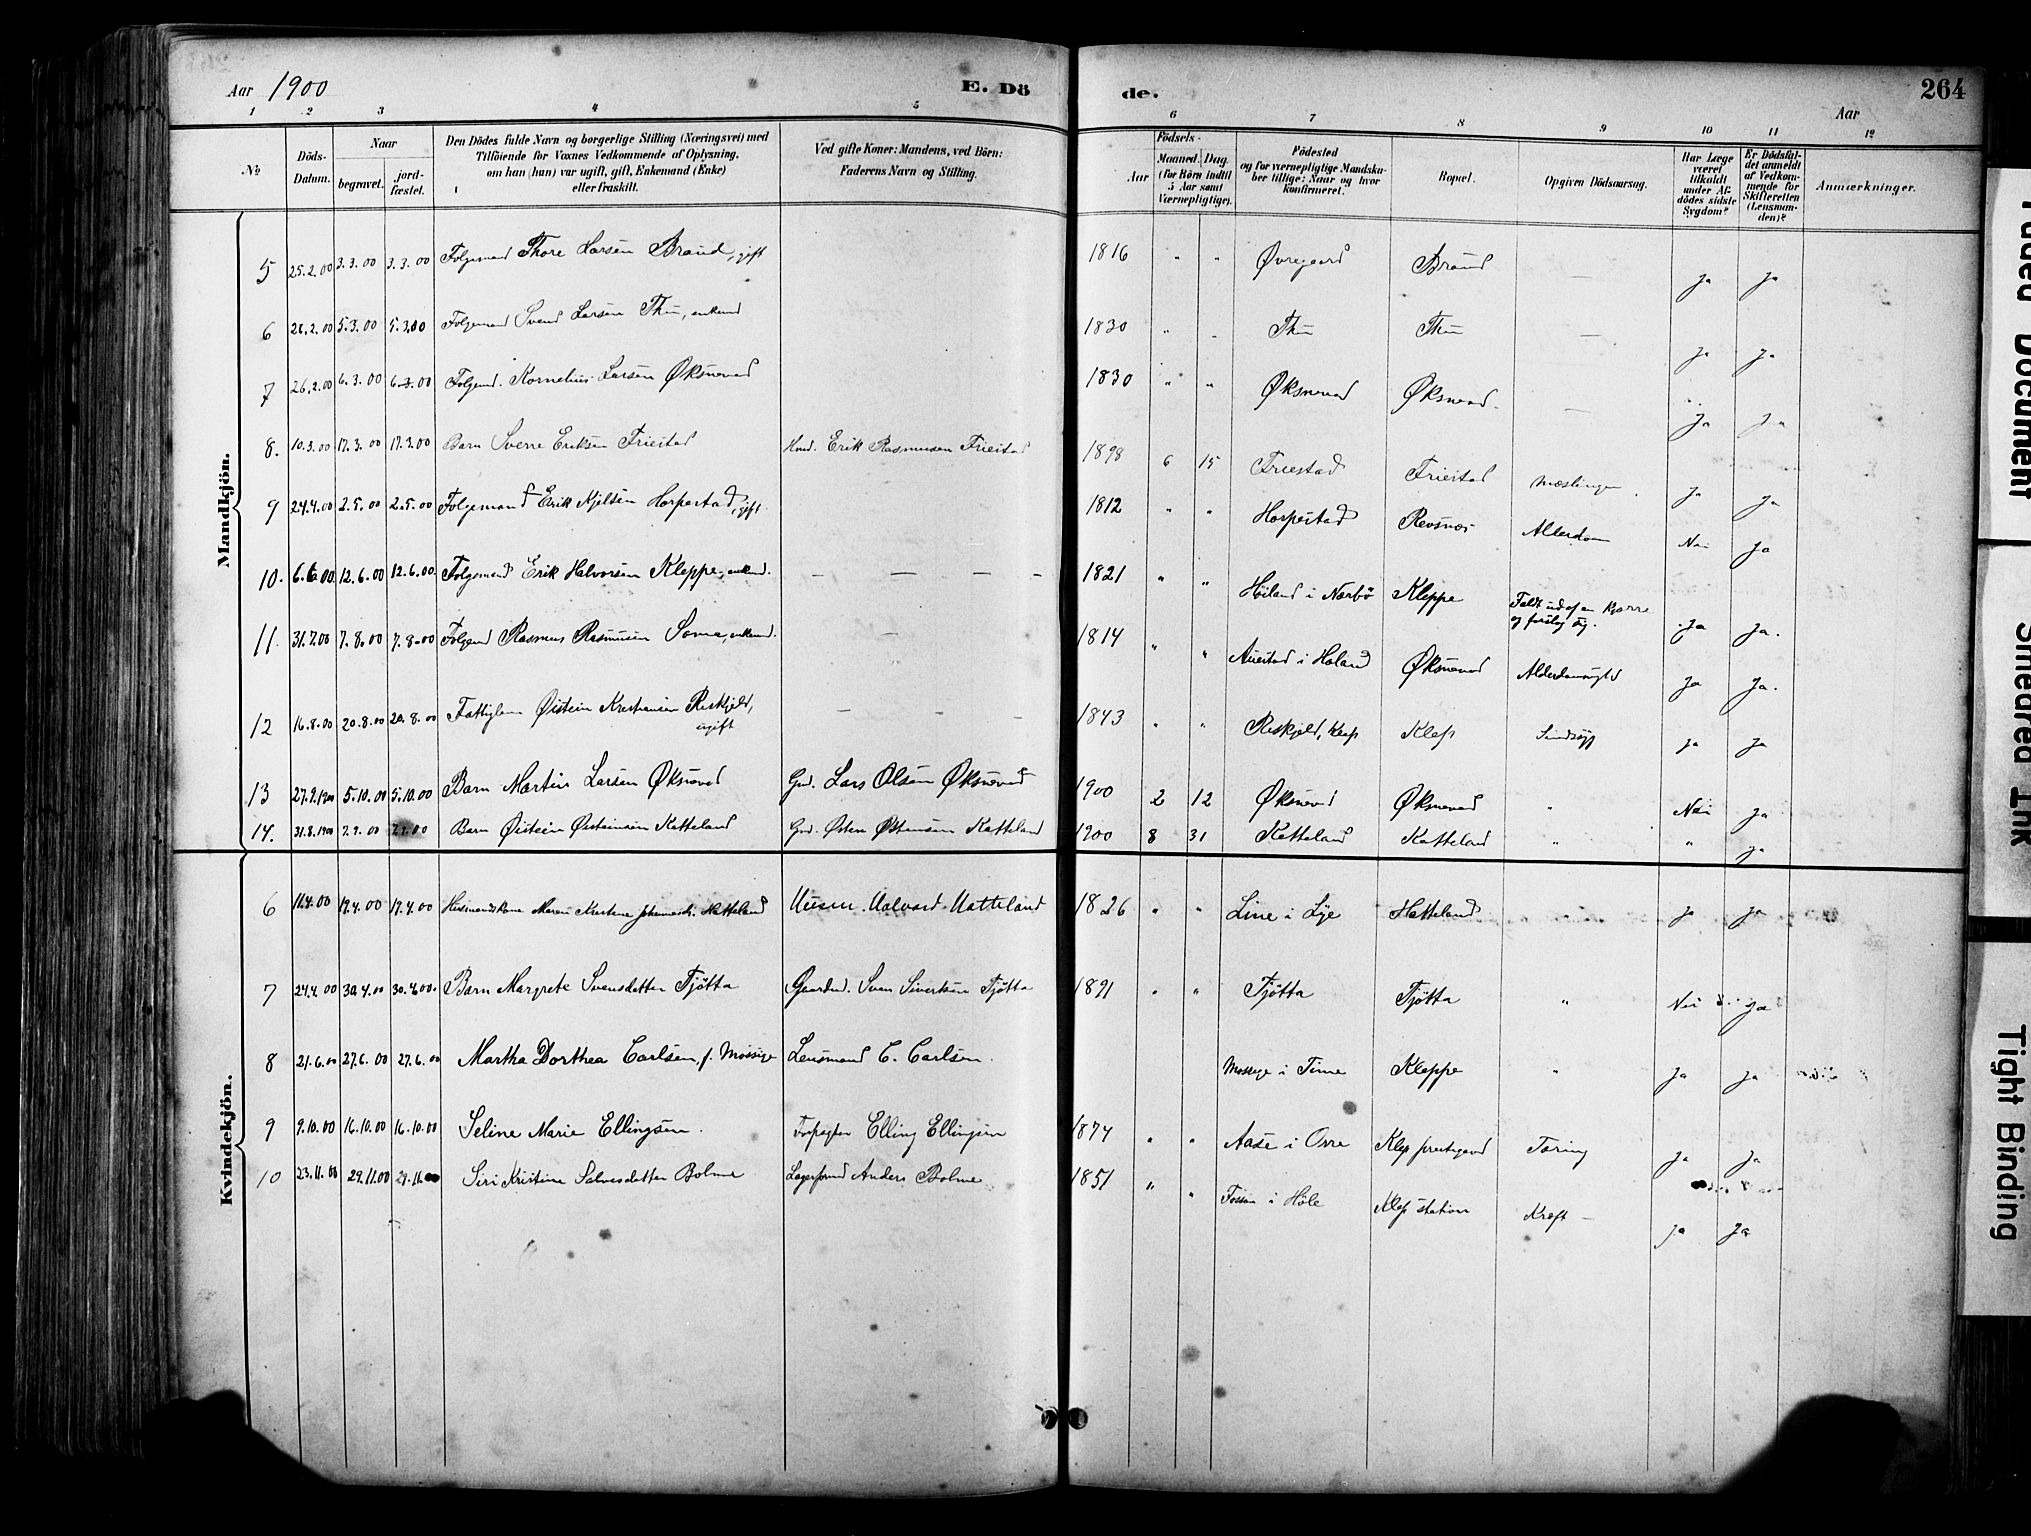 Aar 1900
E. Dö
de.
264
Aar
1 2 3 4 5 6 7 8 9 10 11 12
No
Döds-Datum.
Naar
begravet.
jord-fæstet.
Den Dödes fulde Navn og borgerlige Stilling (Næringsvei) med
Tilföiende for Voxnes Vedkommende af Oplysning,
om han (hun) var ugift, gift, Enkemand (Enke)
eller fraskilt.
Ved gifte Koner: Mandens, ved Börn:
Faderens Navn og Stilling.
Födsels-
Aar
Maaned. Dag.
(for Börn indtil
5 Aar samt
Værnepligtige).
Födested
og for værnepligtige Mandska-
ber tillige: Naar og hvor
konfirmeret.
Bopæl.
Opgiven Dödsaarsag.
Har Læge
været
tilkaldt
under Af-
dödes sidste
Sygdom?
Er Dödsfal-
det anmeldt
af Vedkom-
mende for
Skifteretten
(Lensman-
den)?
Anmærkninger.
Mandkjön.
5 25.2.00 3.3.00 3.3.00 Folgemand Thore Larsen Braud, gift 1816 " " Øvregaard Braud — Ja Ja
6 5.3.00 5.3.00 Folgemand Svend Larsen Thu, enkemd 1830 " " Thu Thu — Ja Ja
7 26.2.00 6.3.00 6.3.00 Folgemd. Kornelius Larsen Øksnevad 1830 " " Øksnevad Øksnevad — Ja Ja
8. 10.3.00 17.3.00 17.3.00 Barn Sverre Eriksen Friestad Hmd. Erik Rasmussen Friestad 1898 6 15 Friestad Friestad Mæslinger Ja Ja
9 24.4.00 2.5.00 2.5.00 Folgemand Erik Njelsen Horpestad, gift 1812 " " Horpestad Revsnes Alderdom Nei Ja
10. 6.6.00 12.6.00 12.6.00 Folgemand Erik Halvorsen Kleppe, enkemd. — — — — 1821 " " Höiland i Nærbö Kleppe Faldt ud af en Kjærre
og forslog sig. Ja Ja
11. 31.7.00 7.8.00 7.8.00 Folgemd Rasmus Rasmussen Soma, enkemd. — 1814 " " Auestad i Holand Øksnevad Alderdomssvaghd Ja Ja.
12 16.8.00 20.8.00 20.8.00 Fattiglem Øistein Kristiansen Reskjeld,
ugift — — — 1843 " " Reskjeld, Klep Klep Sindssyg Ja Ja
13 27.9.1900 5.10.00 5.10.00 Barn Martin Larsen Øksnevad Gmd. Lars Olsen Øksnevad 1900 2 12 Øksnevad Øksnevad " Nei Ja
14. 31.8.1900 7.9.00 7.9.00 Barn Øistein Øisteinsen Katteland Gmd. Østen Østensen Katteland 1900 8 31 Katteland Katteland " " Ja
Kvindekjön.
6 11.4.00 19.4.00 19.4.00 Husmandskone Maren Kirstine Johannesd. Hatteland Husm. Halvard Hatteland 1826 " " Line i Lye Hatteland " Ja Ja
7 24.4.00 30.4.00 30.4.00. Barn Margrete Svensdatter Tjötta Gaardmd. Sven Sivertsen Tjötta 1891 " " Tjötta Tjötta " Nei Ja
8 21.6.00 27.6.00 27.6.00 Martha Dorthea Carlsen, f. Mossige Lensmand C. Carlsen. Mossige i Time Kleppe " Ja Ja
9 9.10.00 16.10.00 16.10.00 Seline Marie Ellingsen. Forpagter Elling Ellingsen 1874 " " Aase i Orre Klep prestegaard Tæring Ja Ja
10 23.11.00 29.11.00 29.11.00 Siri Kristine Salvesdatter Bolme Lagerformd Anders Bolme 1851 " " Fossan i Höle Klep station Kræft — Ja Ja
Faded Document
Smeared Ink
Tight Binding